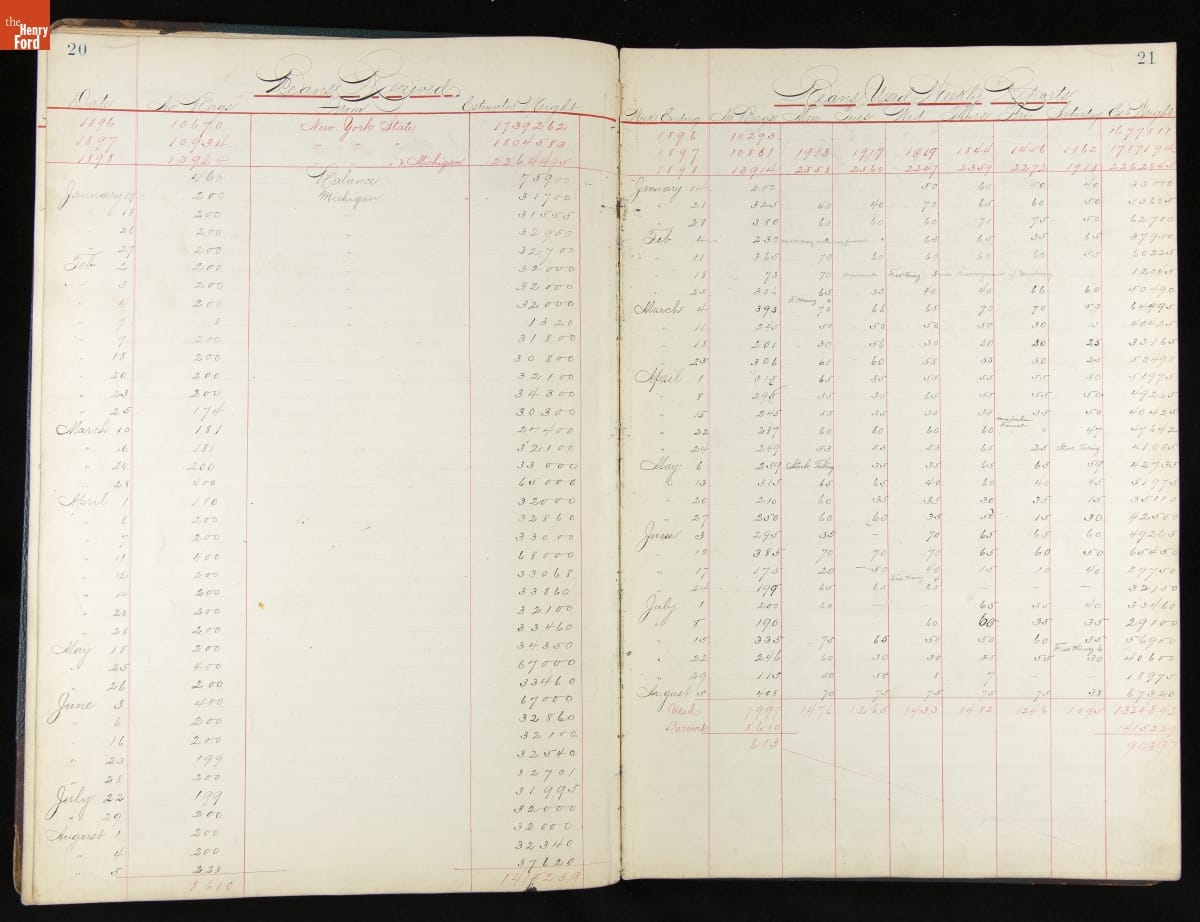 the
Henry
Ford
20
Beans Received
Date No Bags From Estimated Weight
1896 10670 New York State 1739262
1897 10934 " " " 1804583
1898 13924 " " & Michigan 2264495
460 Balance 75900
January 17 200 Michigan 31700
" 18 200 " 31555
" 26 200 " 32950
" 27 200 " 32700
Feb 2 200 " 32000
" 3 200 " 32000
" 4 200 " 32000
" 7 8 " 1320
" 7 200 31800
" 18 200 30800
" 20 200 32100
" 23 200 34300
" 25 174 30300
March 10 181 27400
" 16 181 32100
" 24 200 33000
" 28 400 65000
April 1 180 32000
" 6 200 32860
" 7 200 33000
" 11 400 68000
" 12 200 33068
" 14 200 33860
" 20 200 32100
" 28 200 33460
May 18 200 34350
" 25 400 67000
" 26 200 33460
June 3 400 67000
" 6 200 32860
" 16 200 32100
" 23 199 32540
" 28 200 32701
July 22 199 31995
" 29 200 32000
August 1 200 32000
" 4 200 32340
" 5 238 37620
8610 1415239
21
Beans Used Weekly Reports
Week Ending No Bags Mon Tues Wed Thurs Fri Saturday Est Weight
1896 10293 1677811
1897 10861 1923 1917 1819 1844 1456 1862 1787194
1898 13914 2558 2560 2247 2359 2272 1918 2262845
January 14 200 50 60 50 40 33000
" 21 325 40 40 70 65 60 50 53625
" 28 380 60 60 60 75 75 50 62700
Feb 4 230 65 65 35 65 37950
" 11 365 70 60 60 60 60 55 60225
" 18 73 70 12045
" 25 306 65 35 40 40 66 60 50490
March 4 393 72 66 65 70 70 50 64995
" 11 245 50 50 50 50 30 15 40425
" 18 201 30 56 30 30 30 25 33165
" 25 306 61 60 55 55 50 25 50490
April 1 315 65 55 55 55 55 30 51975
" 8 295 35 35 65 55 55 50 49265
" 15 245 55 35 35 35 35 50 40425
" 22 287 60 60 60 60 x 47 47642
" 24 249 53 53 53 65 25 Stock Taking 41085
May 6 259 Stock Taking 35 35 65 65 59 42735
" 13 315 65 65 40 60 40 45 51975
" 20 210 60 35 35 30 35 15 35110
" 27 250 60 60 35 50 15 30 42500
June 3 295 35 - 70 65 65 60 49265
" 10 385 70 70 70 65 60 50 65450
" 17 175 20 50 40 15 10 40 29750
" 24 199 65 65 65 - - - 32150
July 1 200 60 - - 65 35 40 33460
" 8 190 60 60 35 35 29100
" 15 335 75 65 50 50 60 35 56950
" 22 246 60 30 30 35 55 30 40600
" 29 115 50 50 8 7 - - 18975
August 5 408 70 75 75 75 75 38 67320
Used 7997 1476 1265 1433 1482 1246 1095 1324842
Received 8610 1415239
613 90397